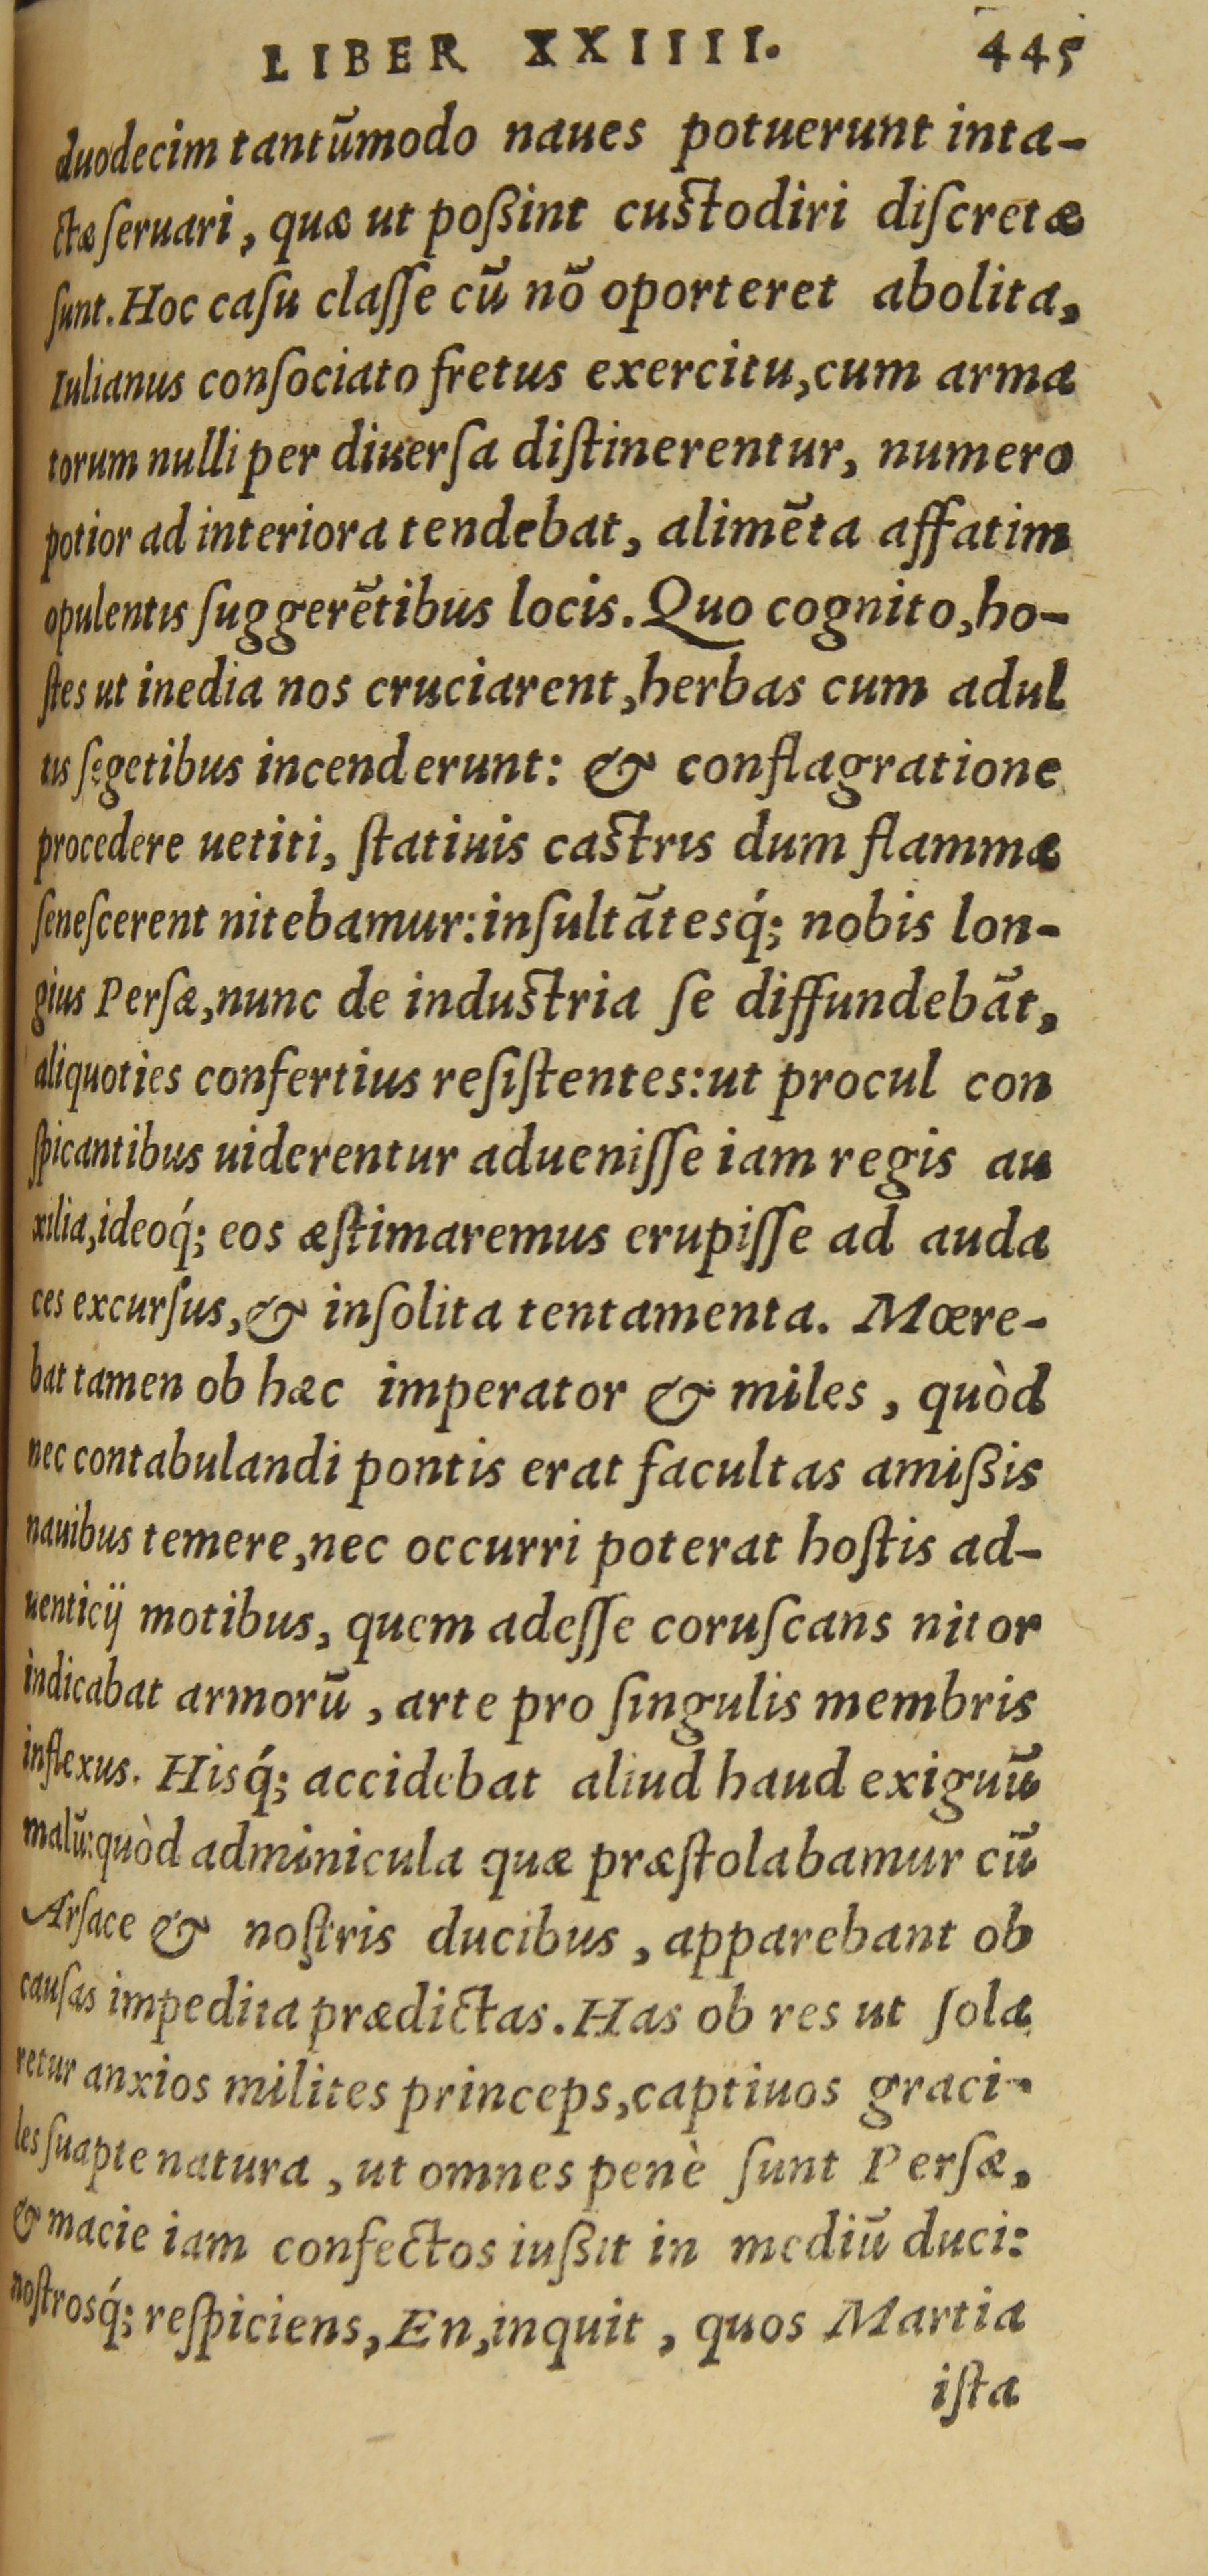 LIBER XXIIII. 445
duodecim tantũmodo naues potuerunt inta-
ctæ ſeruari, quæ ut poßint cuſtodiri diſcretæ
ſunt. Hoc caſu claſſe cũ nõ oporteret abolita,
Iulianus conſociato fretus exercitu, cum arma
torum nulli per diuerſa diſtinerentur, numero
potior ad interiora tendebat, alimẽta affatim
opulentis ſuggerẽtibus locis. Quo cognito, ho-
ſtes ut inedia nos cruciarent, herbas cum adul
tis ſegetibus incenderunt: & conflagratione
procedere uetiti, ſtatiuis caſtris dum flammæ
ſeneſcerent nitebamur: inſultãtesq́; nobis lon-
gius Perſæ, nunc de induſtria ſe diffundebãt,
aliquoties confertius reſiſtentes: ut procul con
ſpicantibus uiderentur adueniſſe iam regis au
xilia, ideoq́; eos æſtimaremus erupiſſe ad auda
ces excurſus, & inſolita tentamenta. Mœre-
bat tamen ob hæc imperator & miles, quòd
nec contabulandi pontis erat facultas amißis
nauibus temere, nec occurri poterat hoſtis ad-
uenticij motibus, quem adeſſe coruſcans nitor
indicabat armorũ, arte pro ſingulis membris
inflexus. Hisq́; accidebat aliud haud exiguũ
malũ: quòd adminicula quæ præſtolabamur cũ
Arſace & noſtris ducibus, apparebant ob
cauſas impedita prædictas. Has ob res ut ſola
retur anxios milites princeps, captiuos graci-
les ſuapte natura, ut omnes penè ſunt Perſæ,
& macie iam confectos iußit in mediũ duci:
noſtrosq́; reſpiciens, En, inquit, quos Martia
iſta